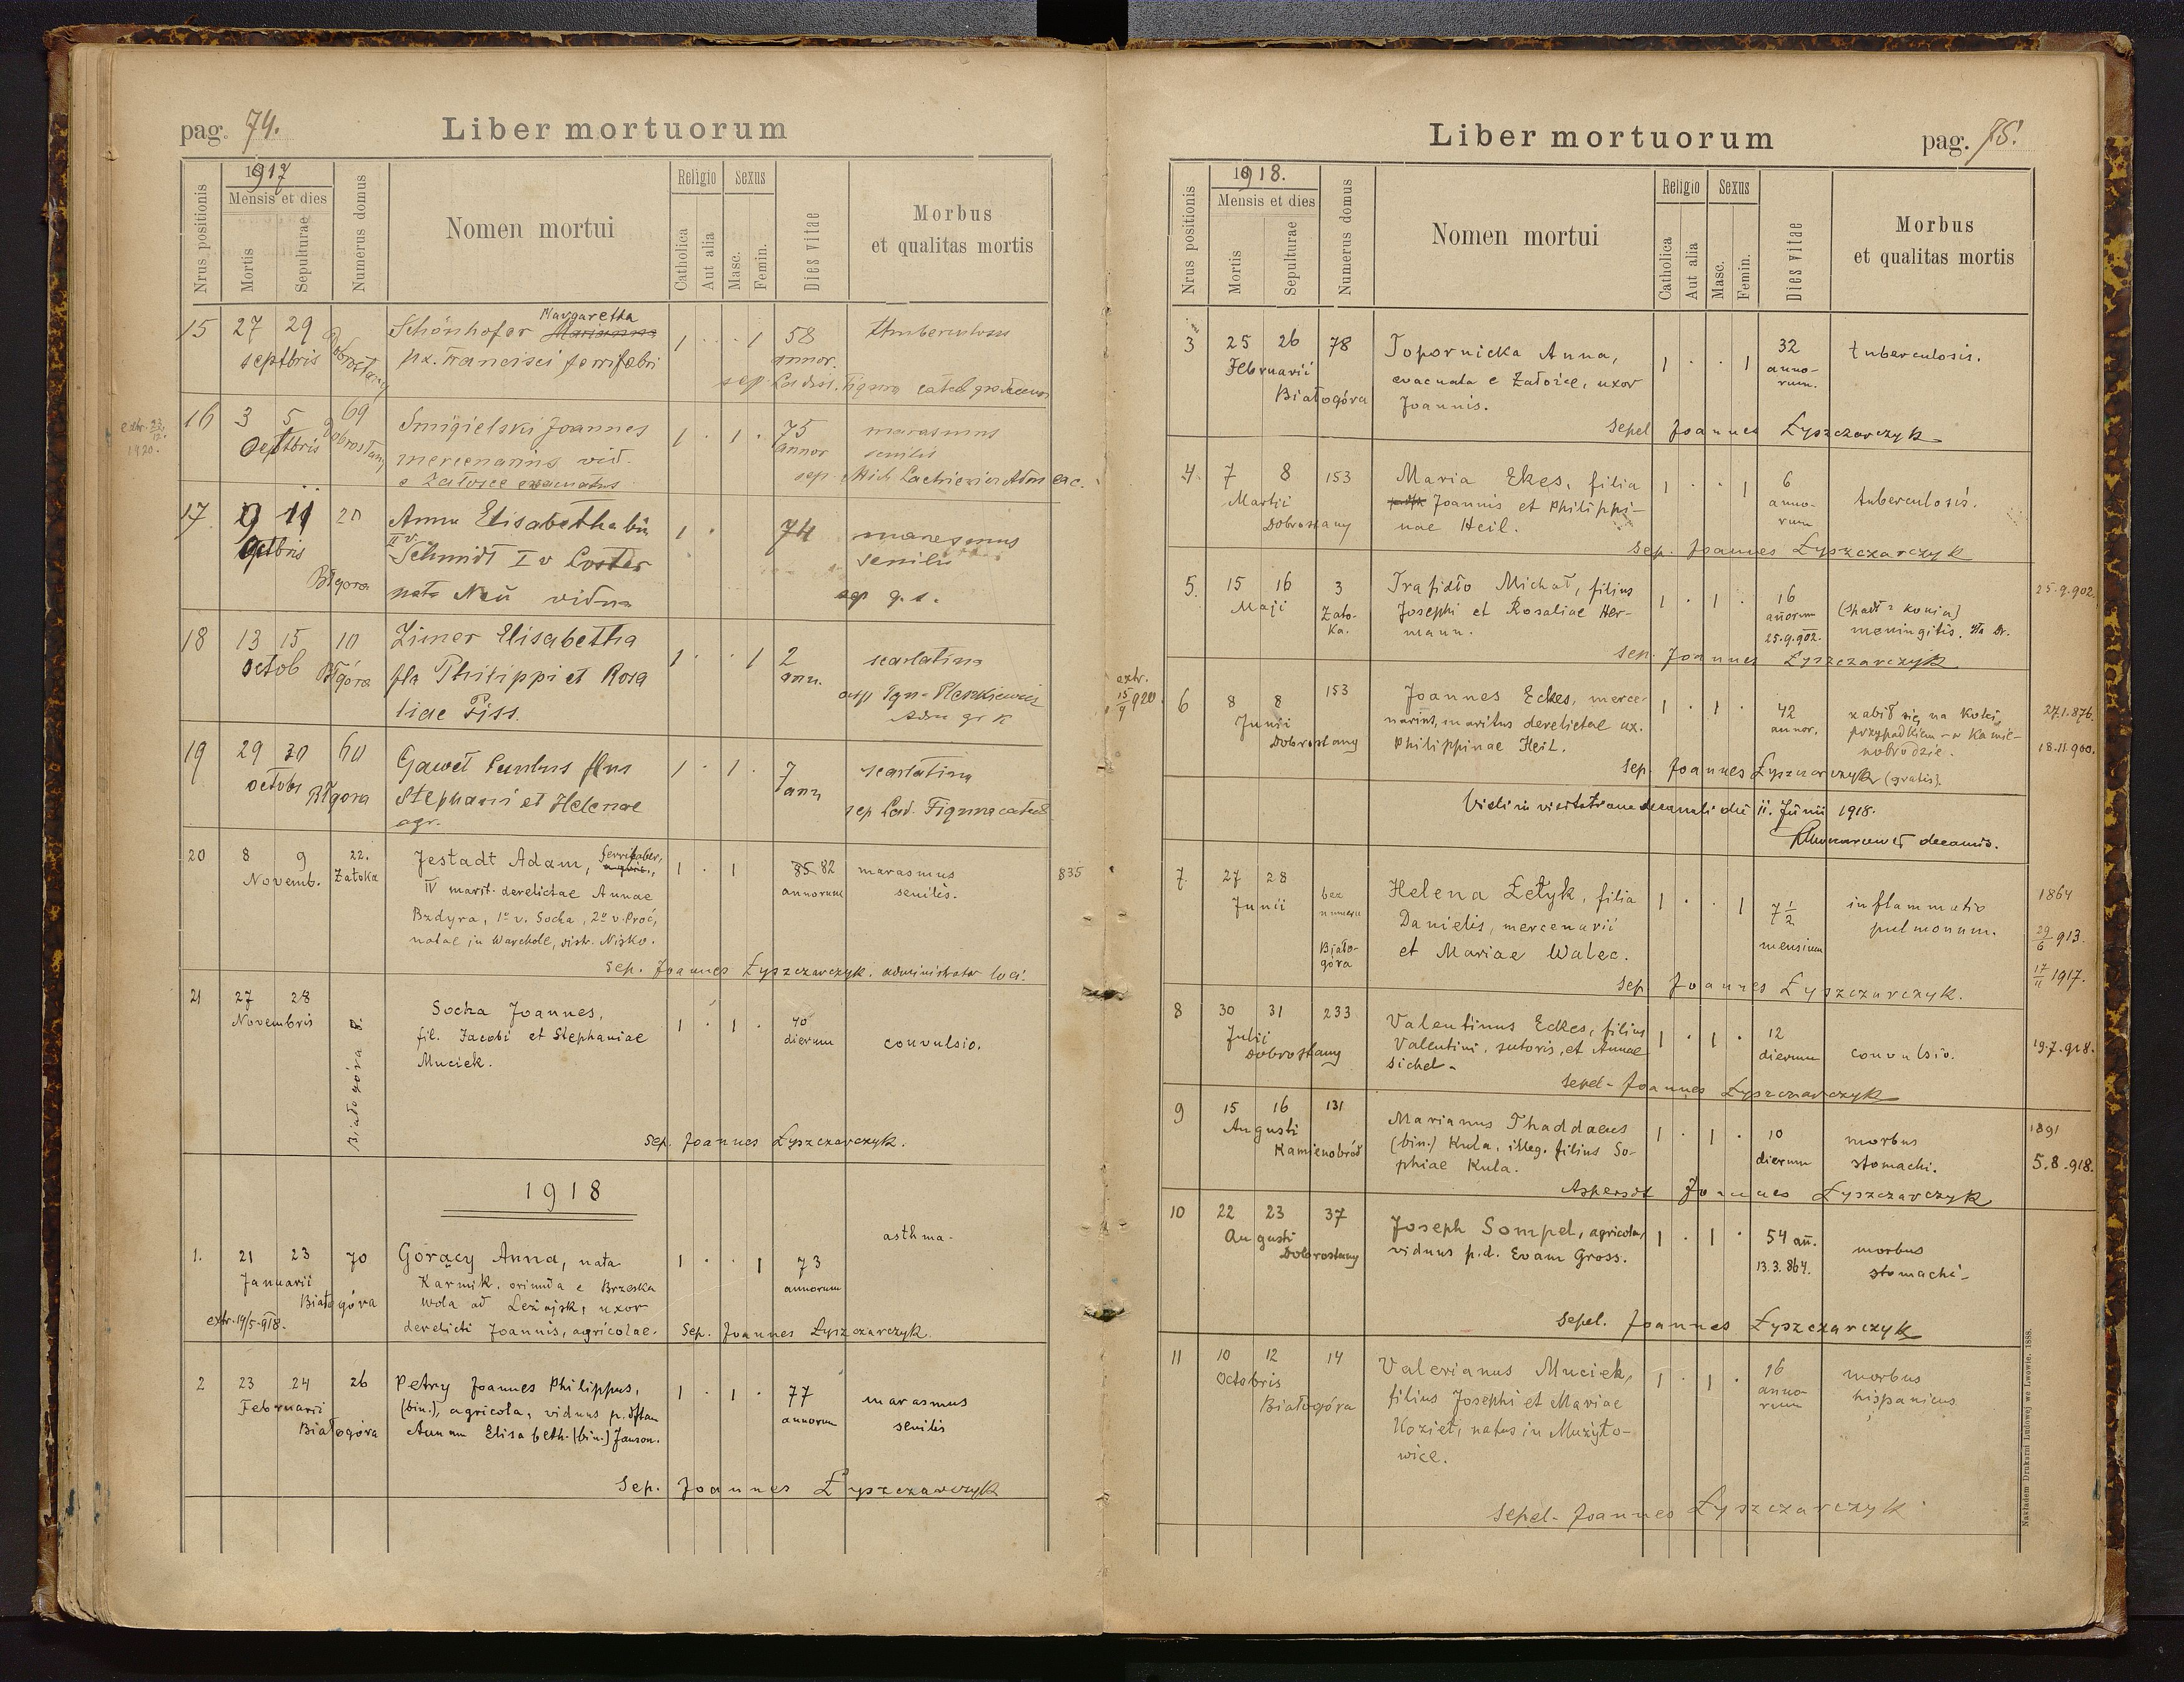 pag. 74.
Liber mortuorum
Nrus positionis
1917
Mensis et dies
Mortis
Sepulturae
Numerus domus
Nomen mortui
Religio
Catholica
Aut alia
Sexus
Masc.
Femin.
Dies vitae
Morbus
et qualitas mortis
15 27 29 Dobrostany Schönhofer Margaretha 1 . . 1 58
septbris ux. Francisci ferrifabri annor.
16 3 5 69 Smigielski Joannes 1 . 1 . 75 marasmus
Octbris Dobrostany mercenarius vid. annor senilis
e Załosce evacuatus
extr.
1920.
17 9 11 20 Anna Elisabetha bin 1 . 74
Octbris II v. Schmidt I v senilis
Błgora nata vidua
18 13 15 10 Zimer Elisabetha 1 . . 1 2 scarlatina
octob Błgóra fla Philippi et Rosa ann.
liae Piss.
19 29 30 60 Gaweł flius 1 . 1 . 7 scarlatina
octobr Błgora Stephani et Helenae ann
agr.
20 8 9 22. Jestadt Adam, ferrifaber, 1 . 1 85 82 marasmus 835
Novemb. Zatoka IV marit. derelictae Annae annorum senilis.
Bzdyra, 1º v. Socha, 2º v. Proć,
natae in Warchole, distr. Nisko.
Sep. Joannes Łyszczarczyk. administrator loci.
21 27 28 Socha Joannes, 1 . 1 . 40
Novembris Białogóra 8. fil. Jacobi et Stephaniae dierum convulsio.
Muciek.
Sep. Joannes Łyszczarczyk.
1918
asthma.
1. 21 23 70 Gorący Anna, nata 1 . . 1 73
Januarii Białogóra Karnik, oriunda e Brzeska annorum
wola ad Leżajsk, uxor
extr. 14/5.918. derelicti Joannis, agricolae. Sep. Joannes Łyszczarczyk.
2 23 24 26 Petry Joannes Philippus, 1 . 1 . 77 marasmus
Februarii (bin.), agricola, viduus p. dftam annorum senilis
Białogóra Annam Elisabeth. (bin.) Janson.
Sep. Joannes Łyszczarczyk
Liber mortuorum
pag. 75.
Nrus positionis
1918.
Mensis et dies
Mortis
Sepulturae
Numerus domus
Nomen mortui
Religio
Catholica
Aut alia
Sexus
Masc.
Femin.
Dies vitae
Morbus
et qualitas mortis
3 25 26 78 Topornicka Anna, 1 . . 1 32 tuberculosis.
Februarii evacuata e Załośce, uxor anno-
Białogóra Joannis. rum.
Sepel Joannes Łyszczarczyk
4. 7 8 153 Maria Ekes, filia 1 . . 1 6
Martii Joannis et Philippi- anno- tuberculosis.
Dobrostany nae Heil. rum
Sep. Joannes Łyszczarczyk
5. 15 16 3 Trafidło Michał, filius 1 . 1 . 16 25.9.902.
Maji Zato- Josephi et Rosaliae Her- añorum (spadł z konia)
ka. mann. 25.9.902. meningitis.
Sep. Joannes Łyszczarczyk
extr.
15/9 920.
6 8 8 153 Joannes Eckes, merce- 1 . 1 . 42 zabił się na kolei 27.1.876.
Junii narius, maritus derelictae ux. annor. przypadkiem w Kamie-
Dobrostany Philippinae Heil. nobrodzie. 18.11.900.
Sep. Joannes Łyszczarczyk (gratis).
Vidi in visitatione decanali die 11. Junii 1918.
decanus.
7. 27 28 bez Helena Łetyk, filia 1 . . 1 7 1/2 inflammatio 1864
Junii numeru Danielis, mercenarii mensium pulmonum. 29/6 913.
Biało- et Mariae Walec. 17/11 1917.
góra
Sep Joannes Łyszczarczyk.
8 30 31 233 Valentinus Eckes, filius 1 . 1 . 12
Julii Valentini, sutoris, et Annae dierum convulsio. 19.7.918.
Dobrostany Sichel.
Sepel. Joannes Łyszczarczyk
9 15 16 131 Marianus Thaddaeus 1 . 1 . 10 morbus 1891
Augusti (bin.) Kula, illeg. filius So- dierum stomachi. 5.8.918.
Kamienobród phiae Kula.
Aspersit Joannes Łyszczarczyk
10 22 23 37 Joseph Sompel, agricola, 1 . 1 . 54 añ. morbus
Augusti viduus p.d. Evam Gross. 13.3.864. stomachi.
Dobrostany
Sepel. Joannes Łyszczarczyk
11 10 12 14 Valerianus Muciek, 1 . 1 . 16 morbus
Octobris filius Josephi et Mariae anno- hispanicus
Białogóra Kozieł, natus in Mużyło- rum
wice.
Sepel. Joannes Łyszczarczyk
Nakładem Drukarni Ludowej we Lwowie. 1888.